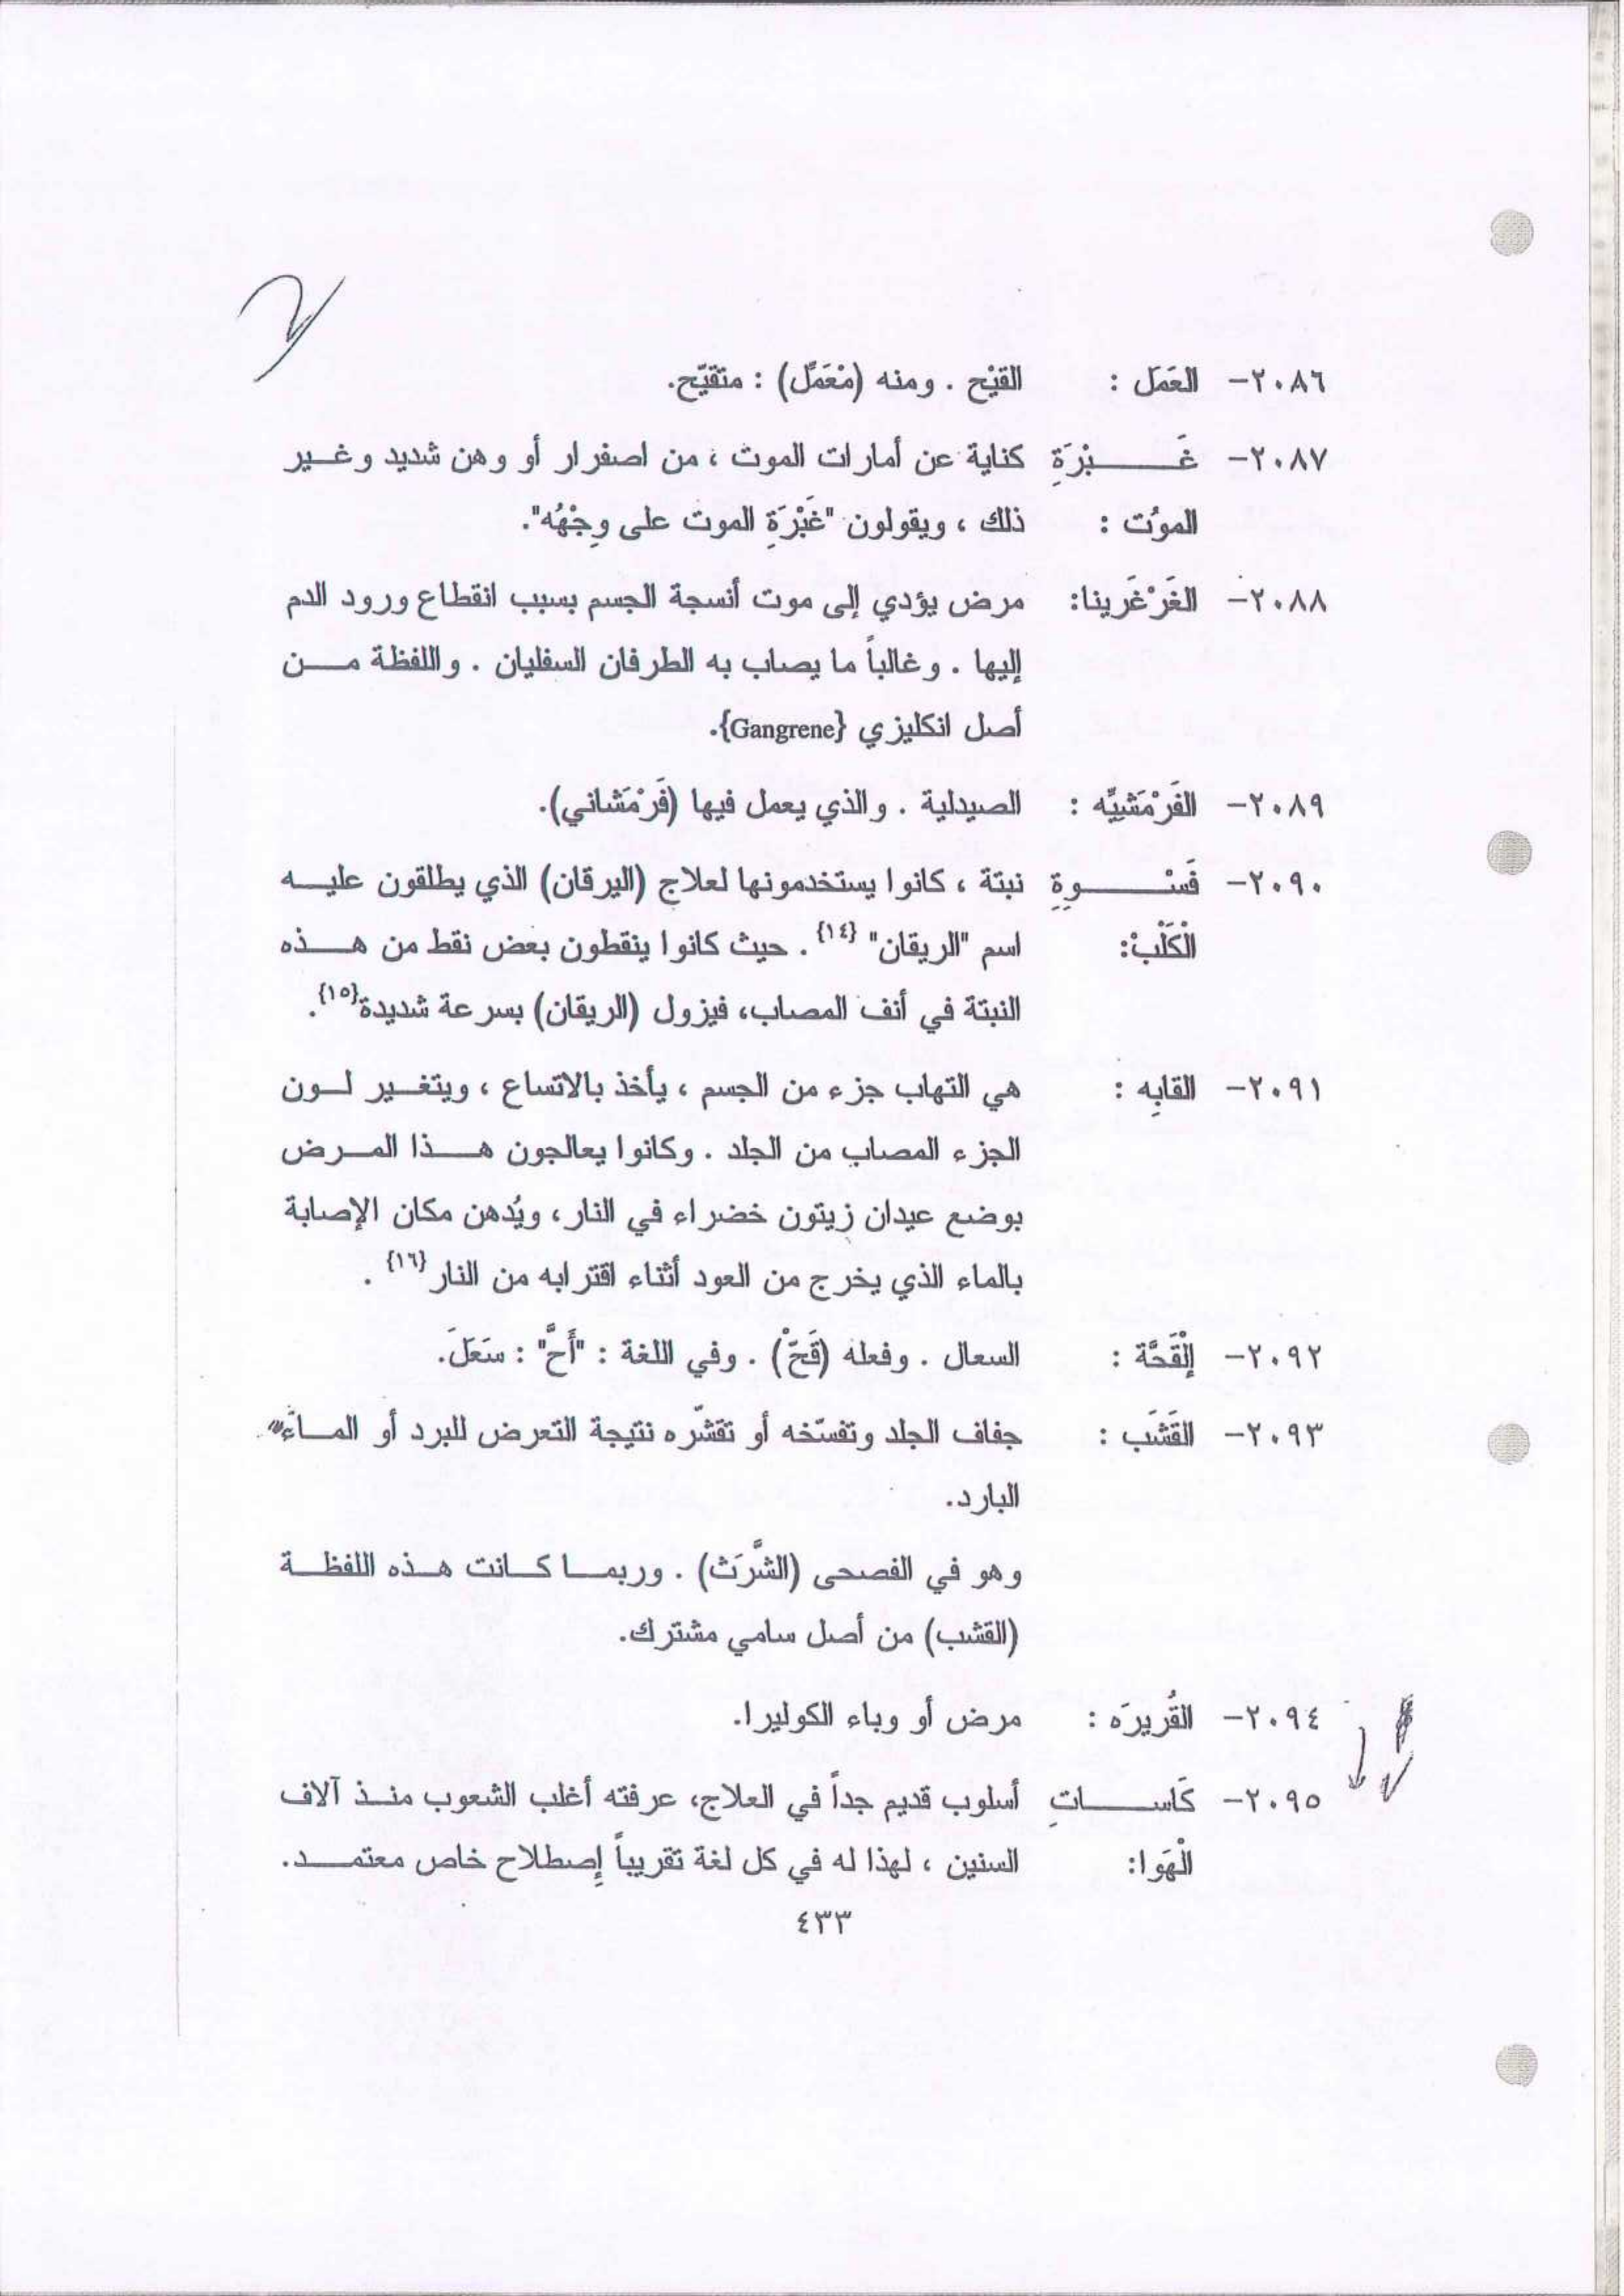 ٢٠٨٦- العَمَل : القيْح . ومنه (مْعَمِّل) : متقيّح.
٢٠٨٧- غَبْرَةِ كناية عن أمارات الموت ، من اصفرار أو وهن شديد وغير
الموُت : ذلك ، ويقولون "غَبْرَةِ الموت على وِجْهُه".
٢٠٨٨- الغَرْغَرينا: مرض يؤدي إلى موت أنسجة الجسم بسبب انقطاع ورود الدم
إليها . وغالباً ما يصاب به الطرفان السفليان . واللفظة من
أصل انكليزي {Gangrene}.
٢٠٨٩- الفَرْمَشيِّه : الصيدلية . والذي يعمل فيها (فَرْمَشاني).
٢٠٩٠- فَسْوِةِ نبتة ، كانوا يستخدمونها لعلاج (اليرقان) الذي يطلقون عليه
الْكَلْبْ: اسم "الريقان" {١٤} . حيث كانوا ينقطون بعض نقط من هذه
النبتة في أنف المصاب، فيزول (الريقان) بسرعة شديدة{١٥}.
٢٠٩١- القابِه : هي التهاب جزء من الجسم ، يأخذ بالاتساع ، ويتغير لون
الجزء المصاب من الجلد . وكانوا يعالجون هذا المرض
بوضع عيدان زيتون خضراء في النار، ويُدهن مكان الإصابة
بالماء الذي يخرج من العود أثناء اقترابه من النار {١٦} .
٢٠٩٢- إلْقَحَّة : السعال . وفعله (قَحّْ) . وفي اللغة : "أَحَّ" : سَعَلَ.
٢٠٩٣- القَشَب : جفاف الجلد وتفسّخه أو تقشّره نتيجة التعرض للبرد أو الماء
البارد.
وهو في الفصحى (الشَّرَث) . وربما كانت هذه اللفظة
(القشب) من أصل سامي مشترك.
٢٠٩٤- القُريرَه : مرض أو وباء الكوليرا.
٢٠٩٥- كَاساتِ أسلوب قديم جداً في العلاج، عرفته أغلب الشعوب منذ آلاف
الْهَوا: السنين ، لهذا له في كل لغة تقريباً إصطلاح خاص معتمد.
٤٣٣